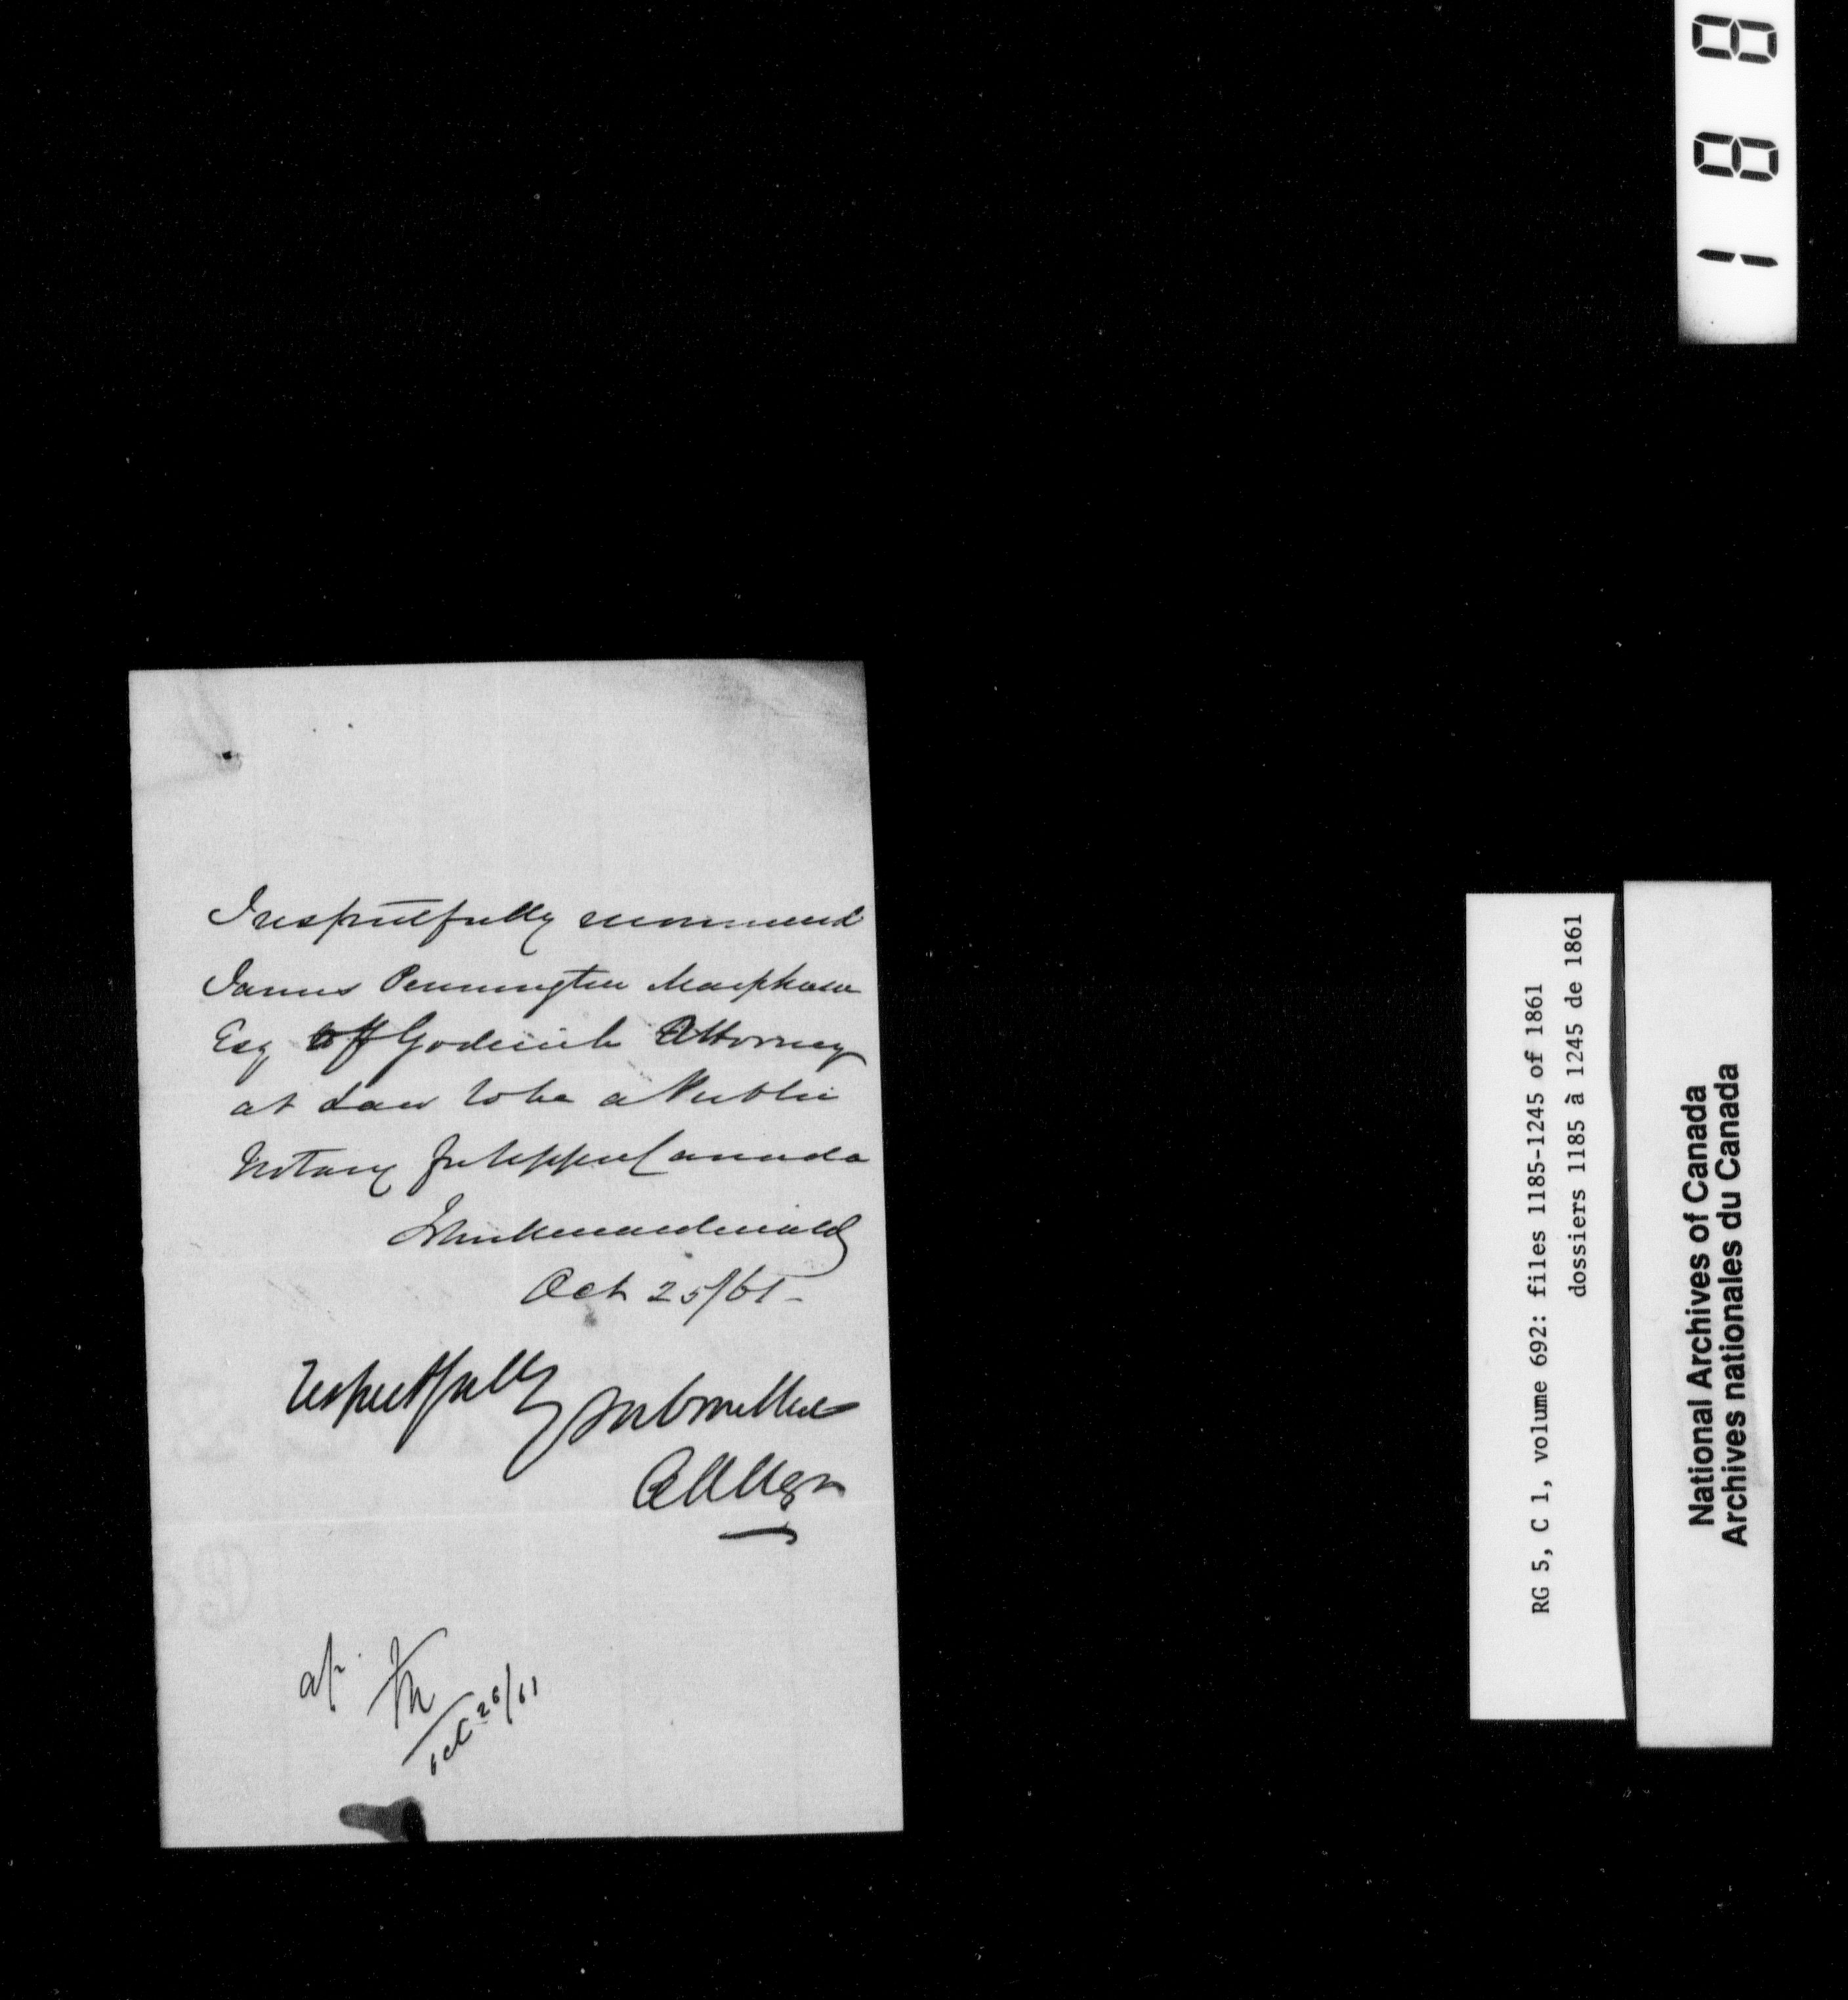 I respectfully recommend
James Pennington Macpherson
Esq of Goderich Attorney
at Law to be a Public
Notary for Upper Canada
John A Macdonald
Oct 25/61 -
respectfully submitted
ap.
Oct 26/61
1 8 8
RG 5, C 1, volume 692: files 1185-1245 of 1861
dossiers 1185 à 1245 de 1861
National Archives of Canada
Archives nationales du Canada